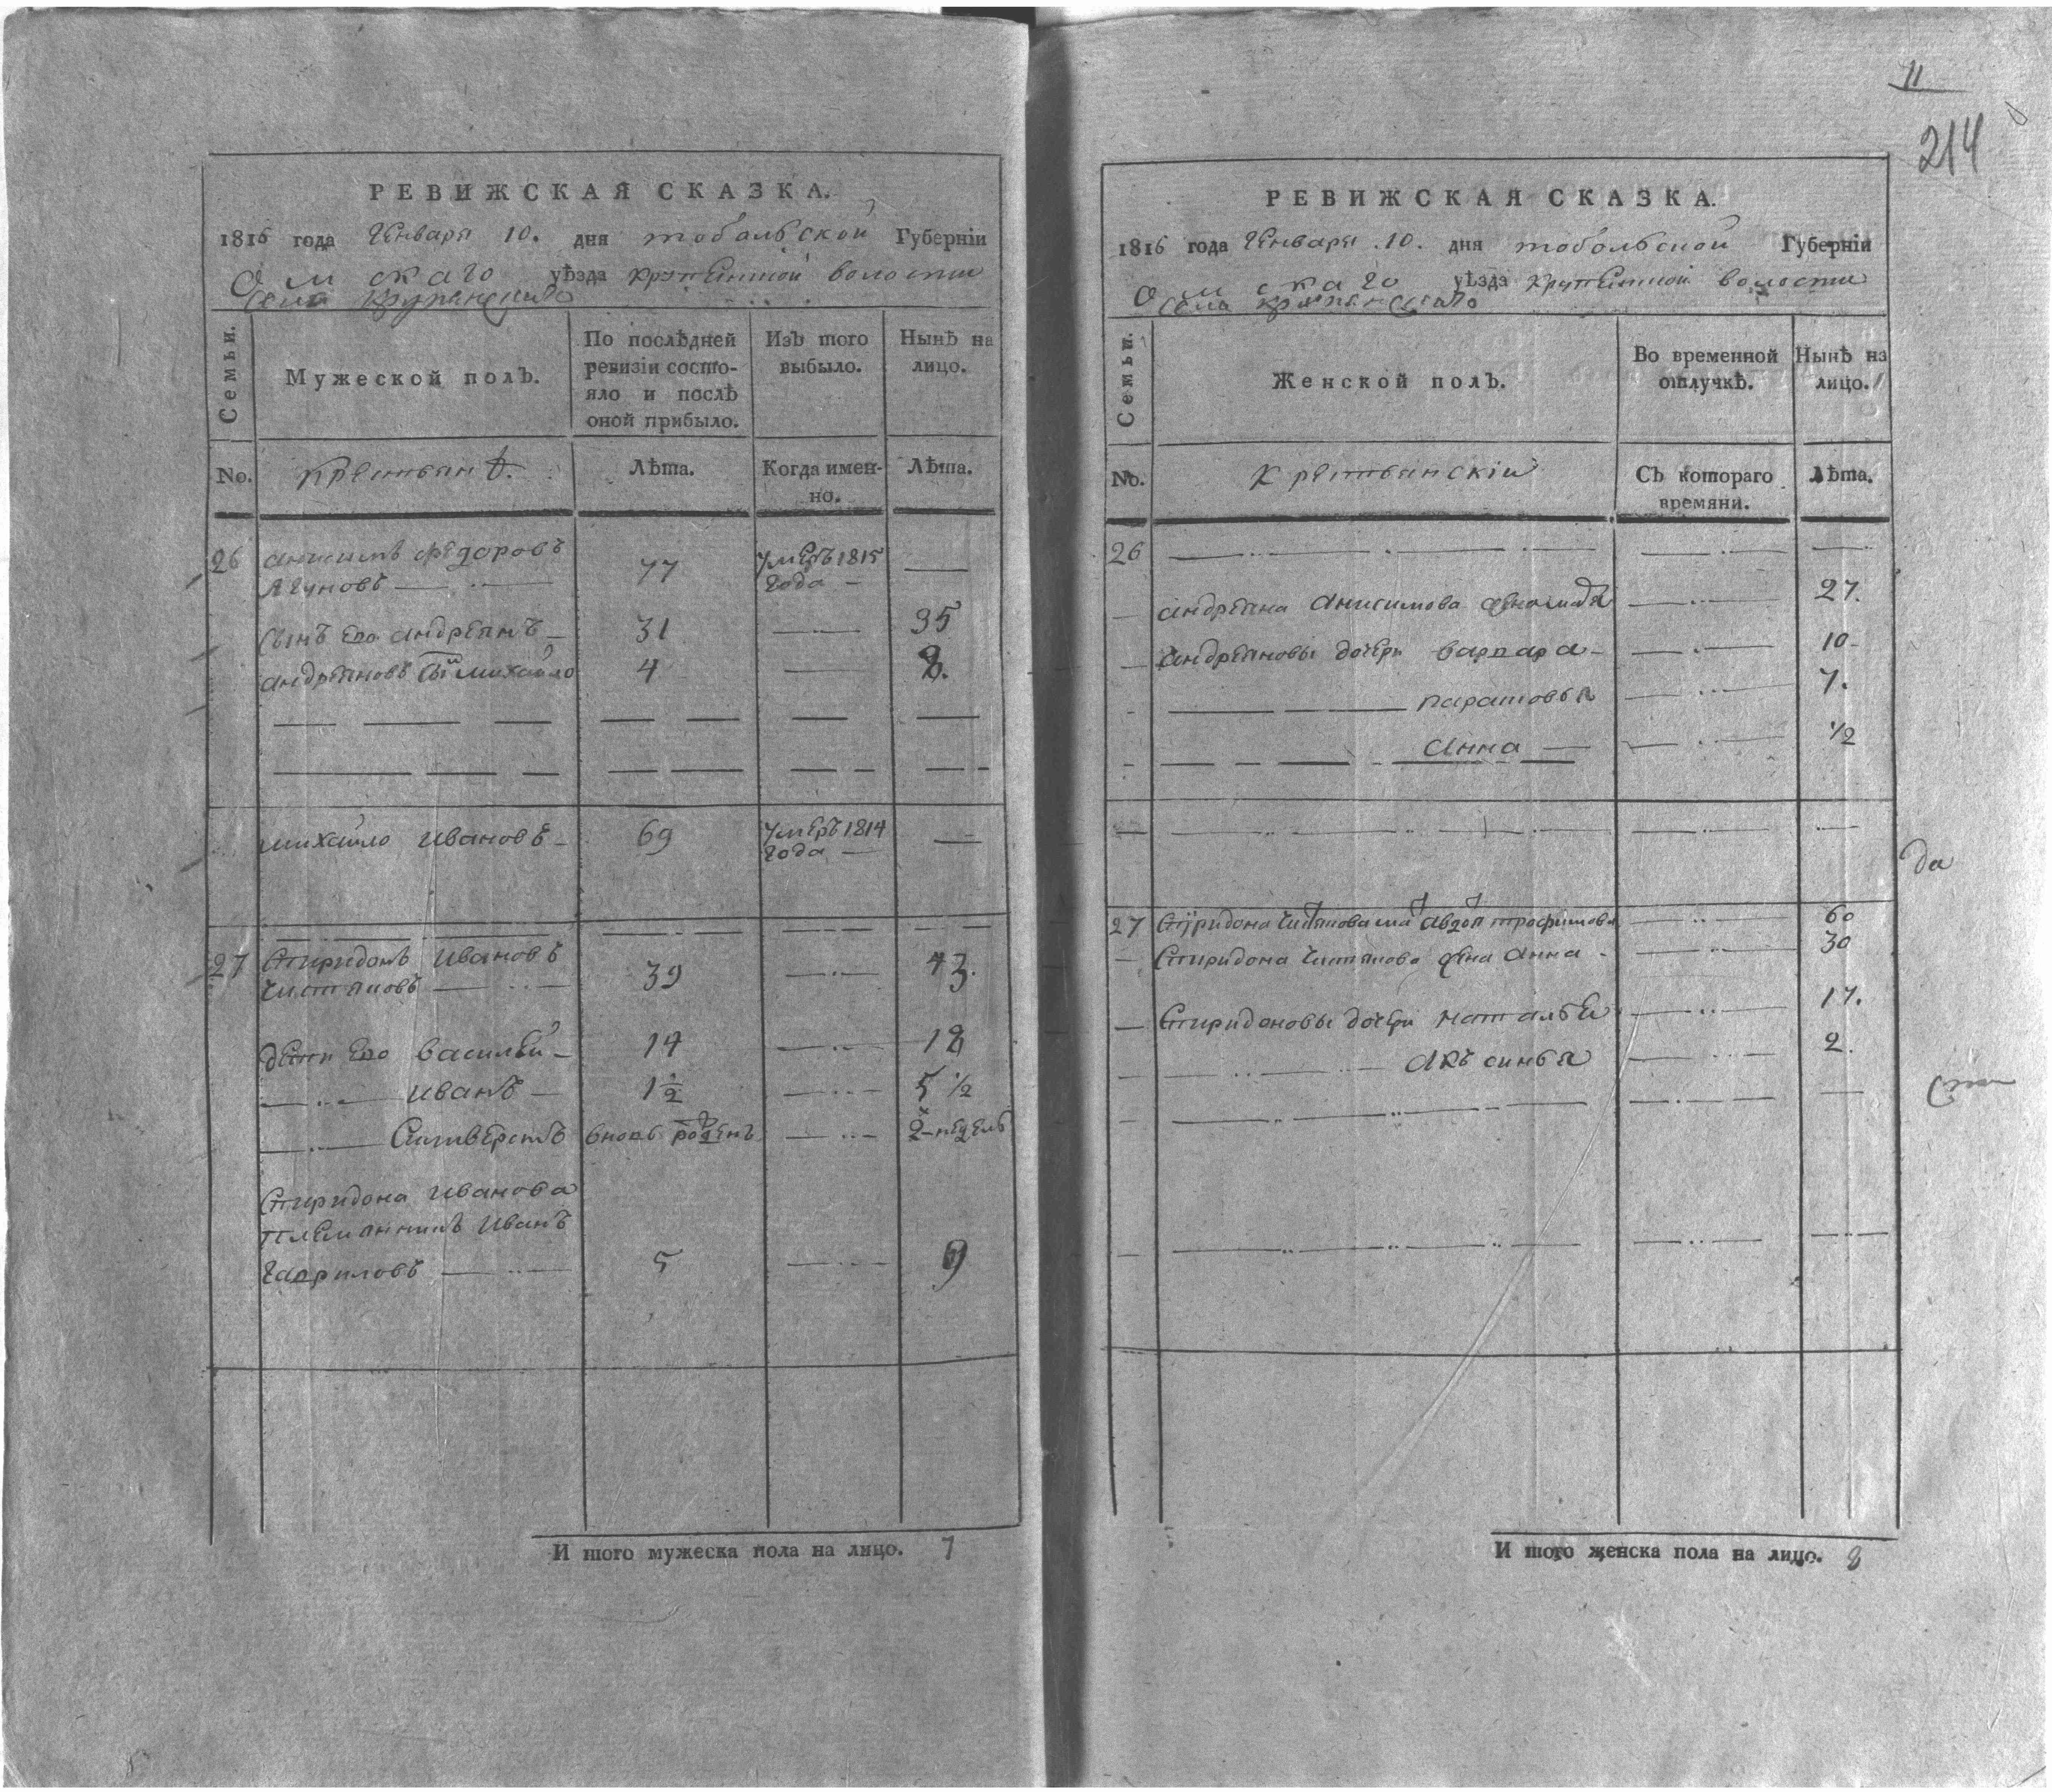 11
214
РЕВИЖСКАЯ СКАЗКА.
1816 года Генваря 10. дня тобольской Губерніи
Омскаго уѣзда крупенной волости
Села
Семьи.
Мужеской полъ.
По послѣдней ревизіи состояло и послѣ оной прибыло.
Изъ того выбыло.
Нынѣ на лицо.
No.
Лѣта.
Когда именно.
Лѣта.
26 анисимъ федоровъ
Ягуновъ 77 умеръ 1815 года
Сынъ его андреянъ 31 35
андреяновъ сынъ михайло 4 8.
михайло ивановъ 69 умеръ 1814 года
27 Спиридонъ ивановъ
Чистяковъ 39 43.
дети его василей 14 18
иванъ 1 1/2 5 1/2
Силиверстъ вновь рожденъ 2 недель
Спиридона иванова
племянникъ иванъ
гавриловъ 5 9
И того мужеска пола на лицо. 7
РЕВИЖСКАЯ СКАЗКА.
1816 года Генваря 10. дня тобольской Губерніи
Омскаго уѣзда крупенной волости
Села
Семьи.
Женской полъ.
Во временной отлучкѣ.
Нынѣ на лицо.
No.
Съ котораго времяни.
Лѣта.
26
андреяна анисимова жена 27.
андреяновы дочери варвара 10
парасковья 7.
анна 1/2
да
27 Спиридона Чистякова трофимова 60
Спиридона Чистякова жена анна 30
Спиридоновы дочери наталья 17.
аксинья 2.
И того женска пола на лицо. 8